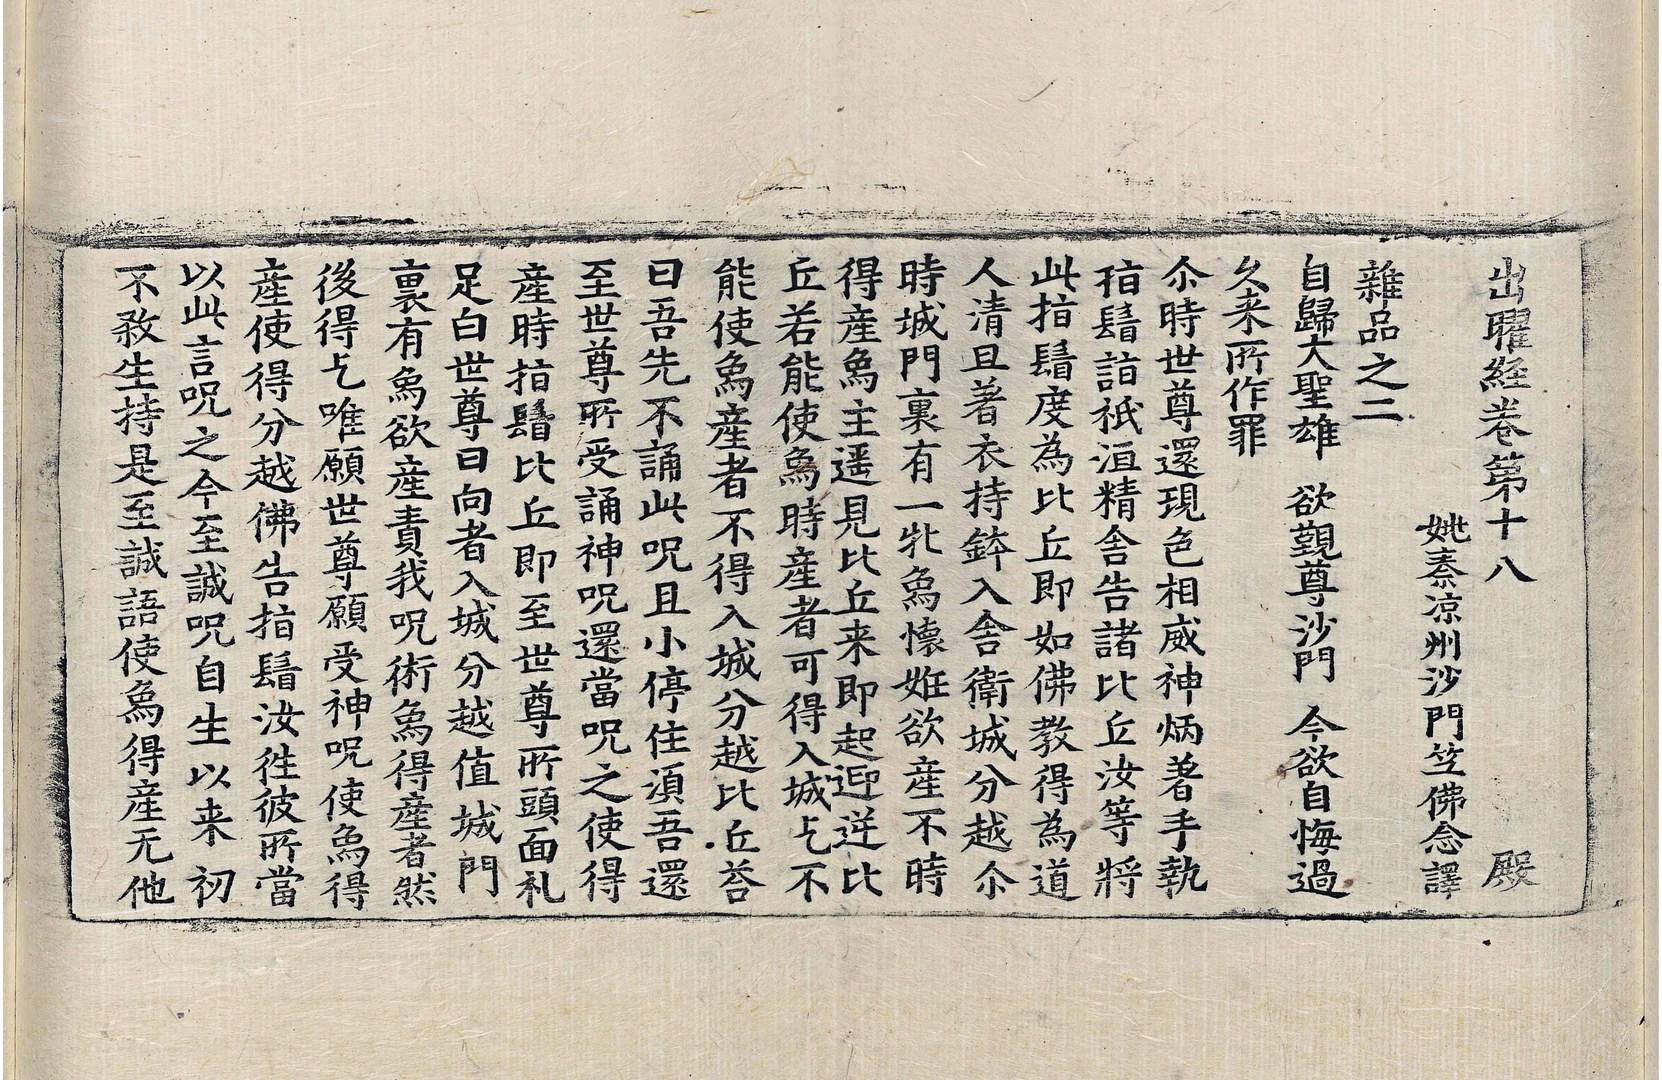 出曜経卷第十八 殿
姚秦凉州沙門竺佛念譯
雜品之二
自歸大聖雄 欲覲尊沙門 今欲自悔過
久来所作罪
尒時世尊還現色相威神炳著手執
指鬘詣祇洹精舎告諸比丘汝等將
此指鬘度為比丘即如佛教得為道
人清旦著衣持鉢入舎衛城分越尒
時城門裏有一牝象懷姙欲産不時
得産象主遥見比丘来即起迎逆比
丘若能使象時産者可得入城乞不
能使象産者不得入城分越比丘荅
曰吾先不誦此呪且小停住湏吾還
至世尊所受誦神呪還當呪之使得
産時指鬘比丘即至世尊所頭面礼
足白世尊曰向者入城分越值城門
裏有象欲産責我呪術象得産者然
後得乞唯願世尊願受神呪使象得
産使得分越佛告指鬘汝徃彼所當
以此言呪之今至誠呪自生以来初
不敎生持是至誠語使象得産无他